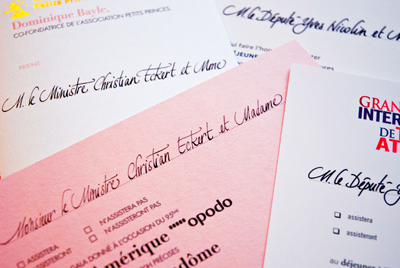 Dominique Bayle,
CO-FONDATRICE DE L'ASSOCIATION PETITS PRINCES,
M. le Ministre Christian Eckert et Mme
M. le Député Yves Nicolin et M
Monsieur le Ministre Christian Eckert et Madame
N'ASSISTERA PAS
N'ASSISTERONT PAS
ASSISTERA
ASSISTERONT
GALA DONNÉ À L'OCCASION DU 95ème
mérique opodo
PRÉCISES
dôme
GRAN
INTER
DE
AT
M. le Dép
assistera
assisteront
au déjeuner